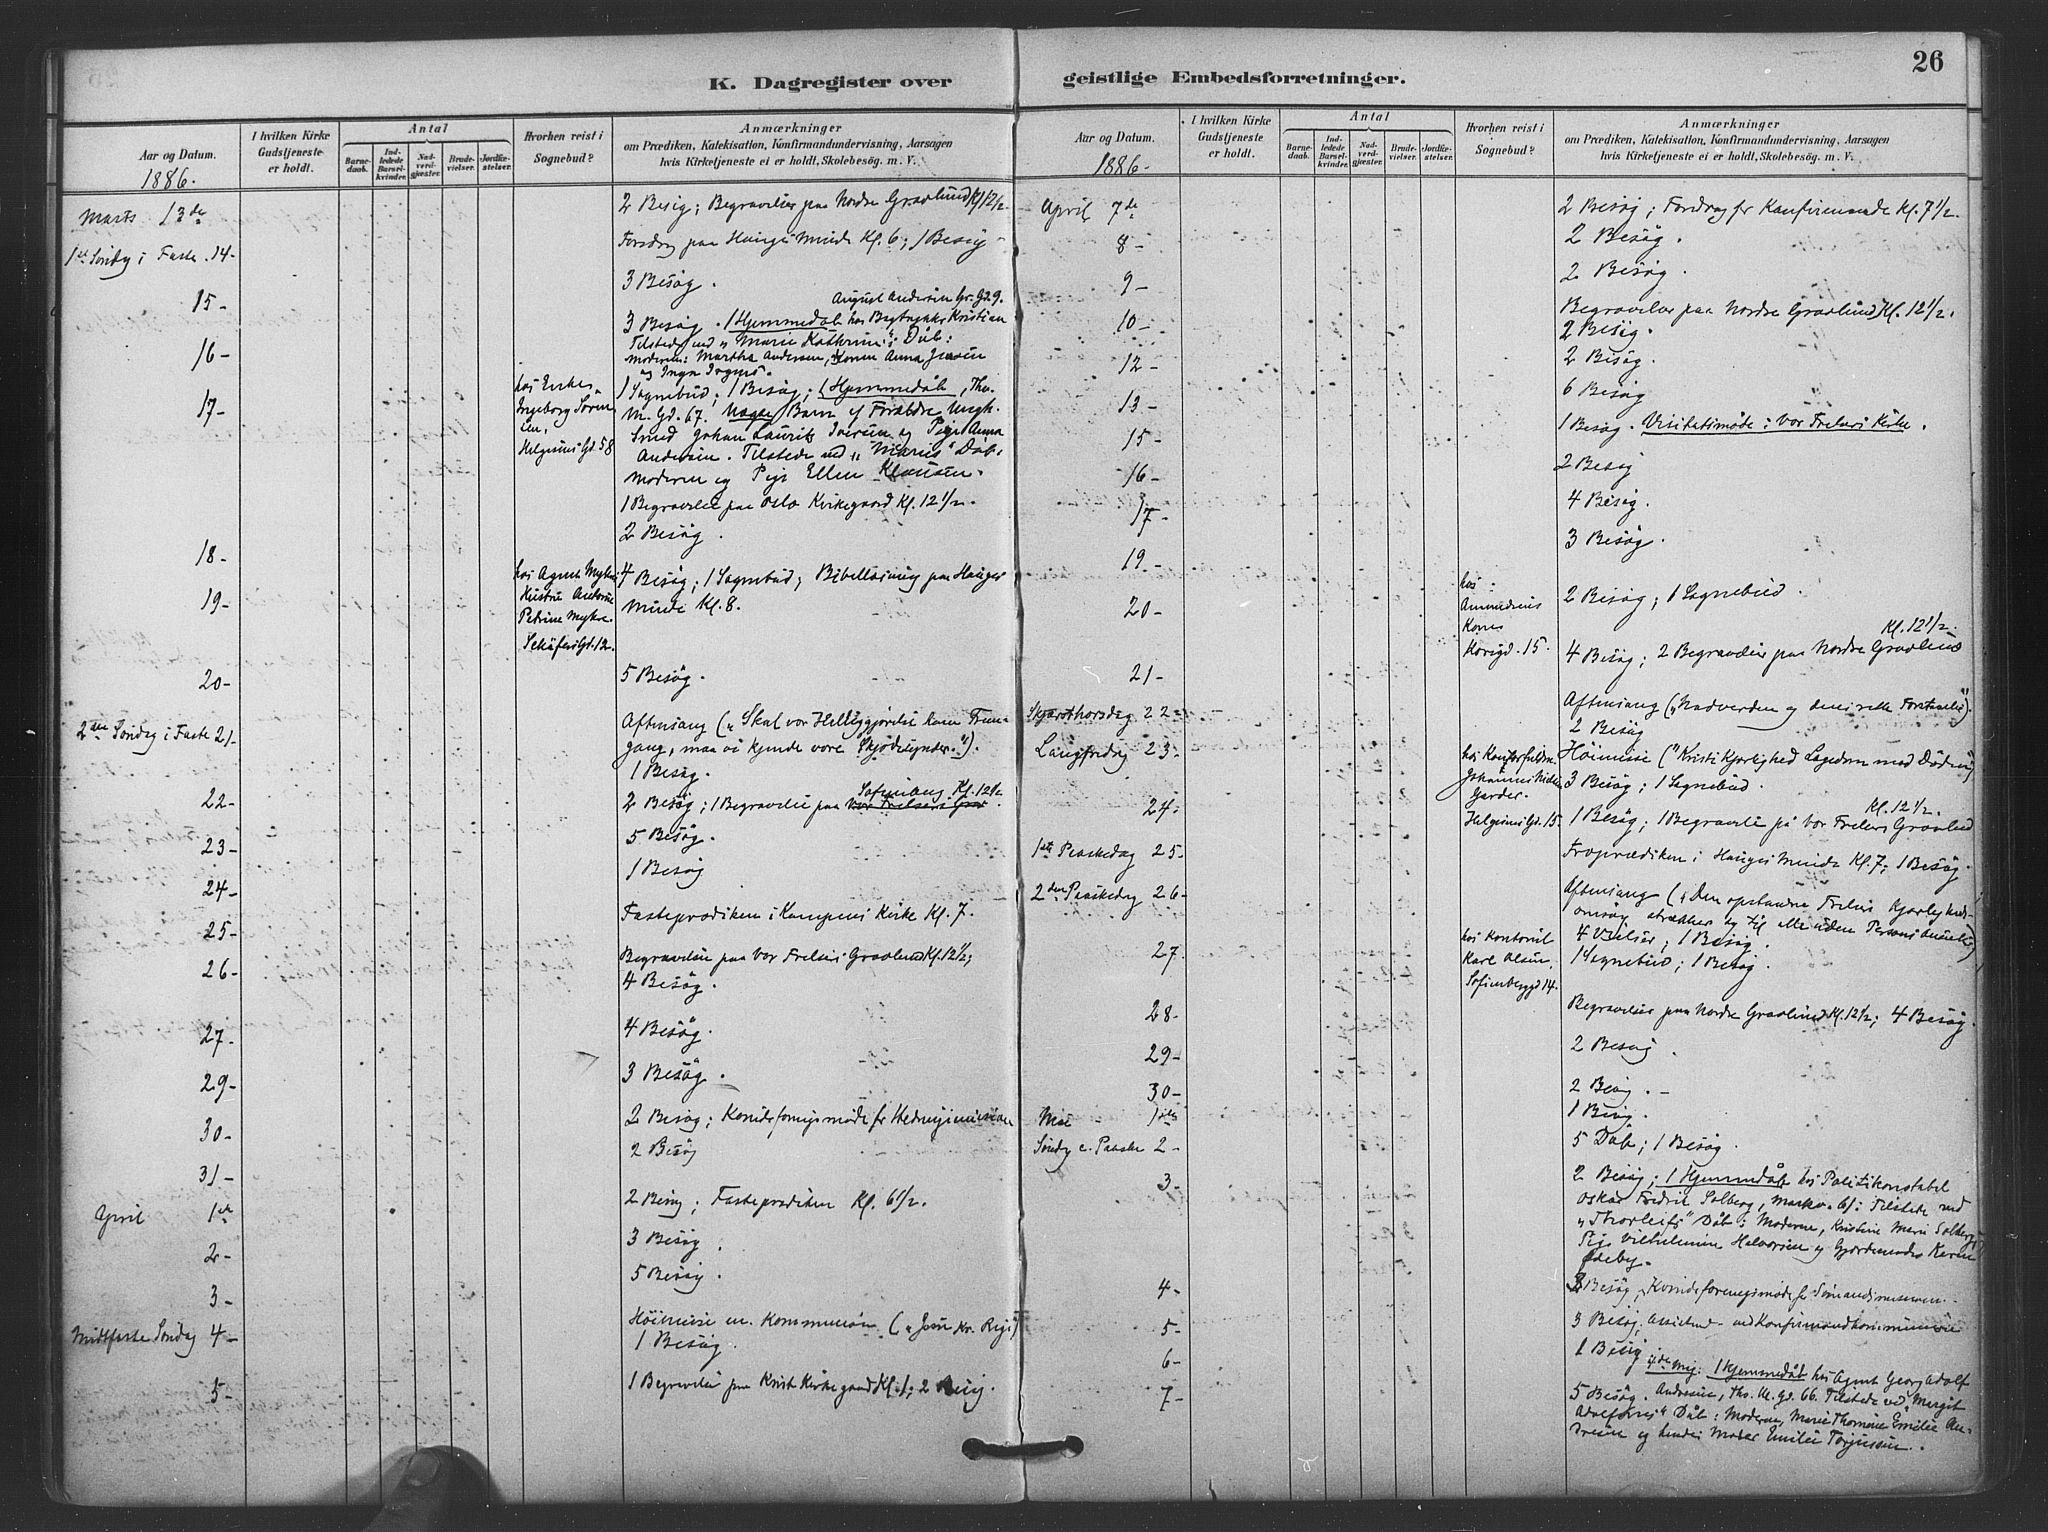 26
K. Dagregister over
geistlige Embedsforretninger.
Aar og Datum.
1886.
I hvilken Kirke
Gudstjeneste
er holdt.
Antal
Barne-
daab.
Ind-
ledede
Barsel-
kvinder.
Nad-
verd-
gjæster.
Brude-
vielser.
Jordfæ-
stelser.
Hvorhen reist i
Sognebud?
Anmærkninger
om Prædiken, Katekisation, Konfirmandundervisning, Aarsagen
hvis Kirketjeneste ei er holdt, Skolebesøg. m. V.
Marts 13de
2 Besøg; Begravelser paa Nordre Gravlund Kl 12 1/2.
1ste Søndag i Faste 14-
Foredrag paa Hauges Minde Kl. 6; 1 Besøg -
15-
3 Besøg.
16-
August Andersen Gr. Gd. 9.
3 Besøg. 1 Hjemmedåb hos Bogtrykker Kristian
Tilstede ved "Marie Kathrine's" Dåb:
moderen: Martha Andersen, Konen Anna Jensen
og Inga
17-
hos Enkes
Ingeborg Søren-
sen,
Helgesens Gd. 58
1 Sognebud; 1 Besøg; 1 Hjemmedåb, Thv.
M. Gd. 67. Barn af Forældre Ungk.
Smed Johan Laurits Iversen og Pige Anna
Andersen. Tilstede ved "Marius" Dåb:
Moderen og Pige Ellen Klausen.
1 Begravelse paa Oslo Kirkegaard Kl. 12 1/2.
18-
2 Besøg.
19-
hos Agent Myhre
Hustru
Petrine Myhre.
Schäfers Gd. 12.
4 Besøg; 1 Sognebud; Bibellæsning paa Hauges
Minde Kl. 8.
20-
5 Besøg.
2den Søndag i Faste 21-
Aftensang ("Skal vor Helliggjørelse have Frem-
gang, maa vi kjende vore Skjødesynder.").
1 Besøg.
22-
Sofienberg Kl. 12 1/2
2 Besøg; 1 Begravelse paa Vor Frelsers Grav.
23-
5 Besøg.
24-
1 Besøg
25-
Fasteprædiken i Kampens Kirke Kl. 7.
26-
Begravelse paa Vor Frelsers Gravlund Kl. 12 1/2;
4 Besøg.
27-
4 Besøg.
29-
3 Besøg.
30-
2 Besøg; Kvindeforeningsmøde for Hedningemissionen
31-
2 Besøg
April 1ste
2 Besøg; Fasteprædiken Kl. 6 1/2.
2-
3 Besøg.
3-
5 Besøg.
Midtfaste Søndag 4-
Høimesse m. Kommunion ("Jesu Kr. Rige")
1 Besøg.
5-
1 Begravelse paa Krist Kirkegaard Kl. 1; 2 Besøg.
Aar og Datum.
1886-
I hvilken Kirke
Gudstjeneste
er holdt.
Antal
Barne-
daab.
Ind-
ledede
Barsel-
kvinder.
Nad-
verd-
gjæster.
Brude-
vielser.
Jordfæ-
stelser.
Hvorhen reist i
Sognebud?
Anmærkninger
om Prædiken, Katekisation, Konfirmandundervisning, Aarsagen
hvis Kirketjeneste ei er holdt, Skolebesøg. m. V.
April 7de
2 Besøg; Foredrag for Konfirmerede Kl. 7 1/2.
8-
2 Besøg.
9-
2 Besøg.
10-
Begravelser paa Nordre Gravlund Kl. 12 1/2.
2 Besøg.
12-
2 Besøg.
13-
6 Besøg
15-
1 Besøg. Visitatsmøde i Vor Frelsers Kirke.
16-
2 Besøg
17-
4 Besøg.
19-
3 Besøg.
20-
hos
Amundsens
Kone
Korsgd. 15.
2 Besøg; 1 Sognebud.
21-
Kl. 12 1/2.
4 Besøg; 2 Begravelser paa Nordre Gravlund
Skjærthorsdag 22-
Aftensang ("Nadverden og dens rette Forstaaelse").
2 Besøg
Langfredag 23-
hos
Johannes
Garder.
Helgesens Gd. 15.
Høimesse ("Kristi Kjærlighed Lægedom mod Døden")
3 Besøg; 1 Sognebud.
24-
Kl. 12 1/2.
1 Besøg; 1 Begravelse på Vor Frelsers Gravlund
1ste Paaskedag 25-
Froprædiken i Hauges Minde Kl. 7; 1 Besøg.
2den Paaskedag 26-
Aftensang ("Den opstandne Frelsers Kjærligheds-
omsorg strækker sig til alle uden Persons Anseelse")
4 Vielser; 1 Besøg.
27-
hos Kontorist
Karl Olsen,
Sofienberggd 14.
1 Sognebud; 1 Besøg.
28-
Begravelser paa Nordre Gravlund Kl. 12 1/2; 4 Besøg.
29-
2 Besøg.
30-
2 Besøg. -
Mai 1ste
1 Besøg.
Søndag e. Paaske 2-
5 Dåb; 1 Besøg.
3-
2 Besøg; 1 Hjemmedåb hos Politikonstabel
Oskar Fredrik Solberg, Markv. 61: Tilstede ved
"Thorleifs" Dåb: Moderen, Kristine Marie Solberg,
Pige Vilhelmine Halvorsen og Gjordemoder Karen
Ødeby.
4-
3 Besøg, Kvindeforeningsmøde for Sømandsmissionen.
5-
3 Besøg; Assistent ved Konfirmandkommunion
6-
1 Besøg
7-
4de Maj: 1 Hjemmedåb hos Agent Georg Adolf
5 Besøg. Andresen, Thv. M. Gd. 66. Tilstede ved "Margit
Dåb: Moderen, Marie Thomine Emilie An-
dresen og hendes Moder Emilie Torjussen.